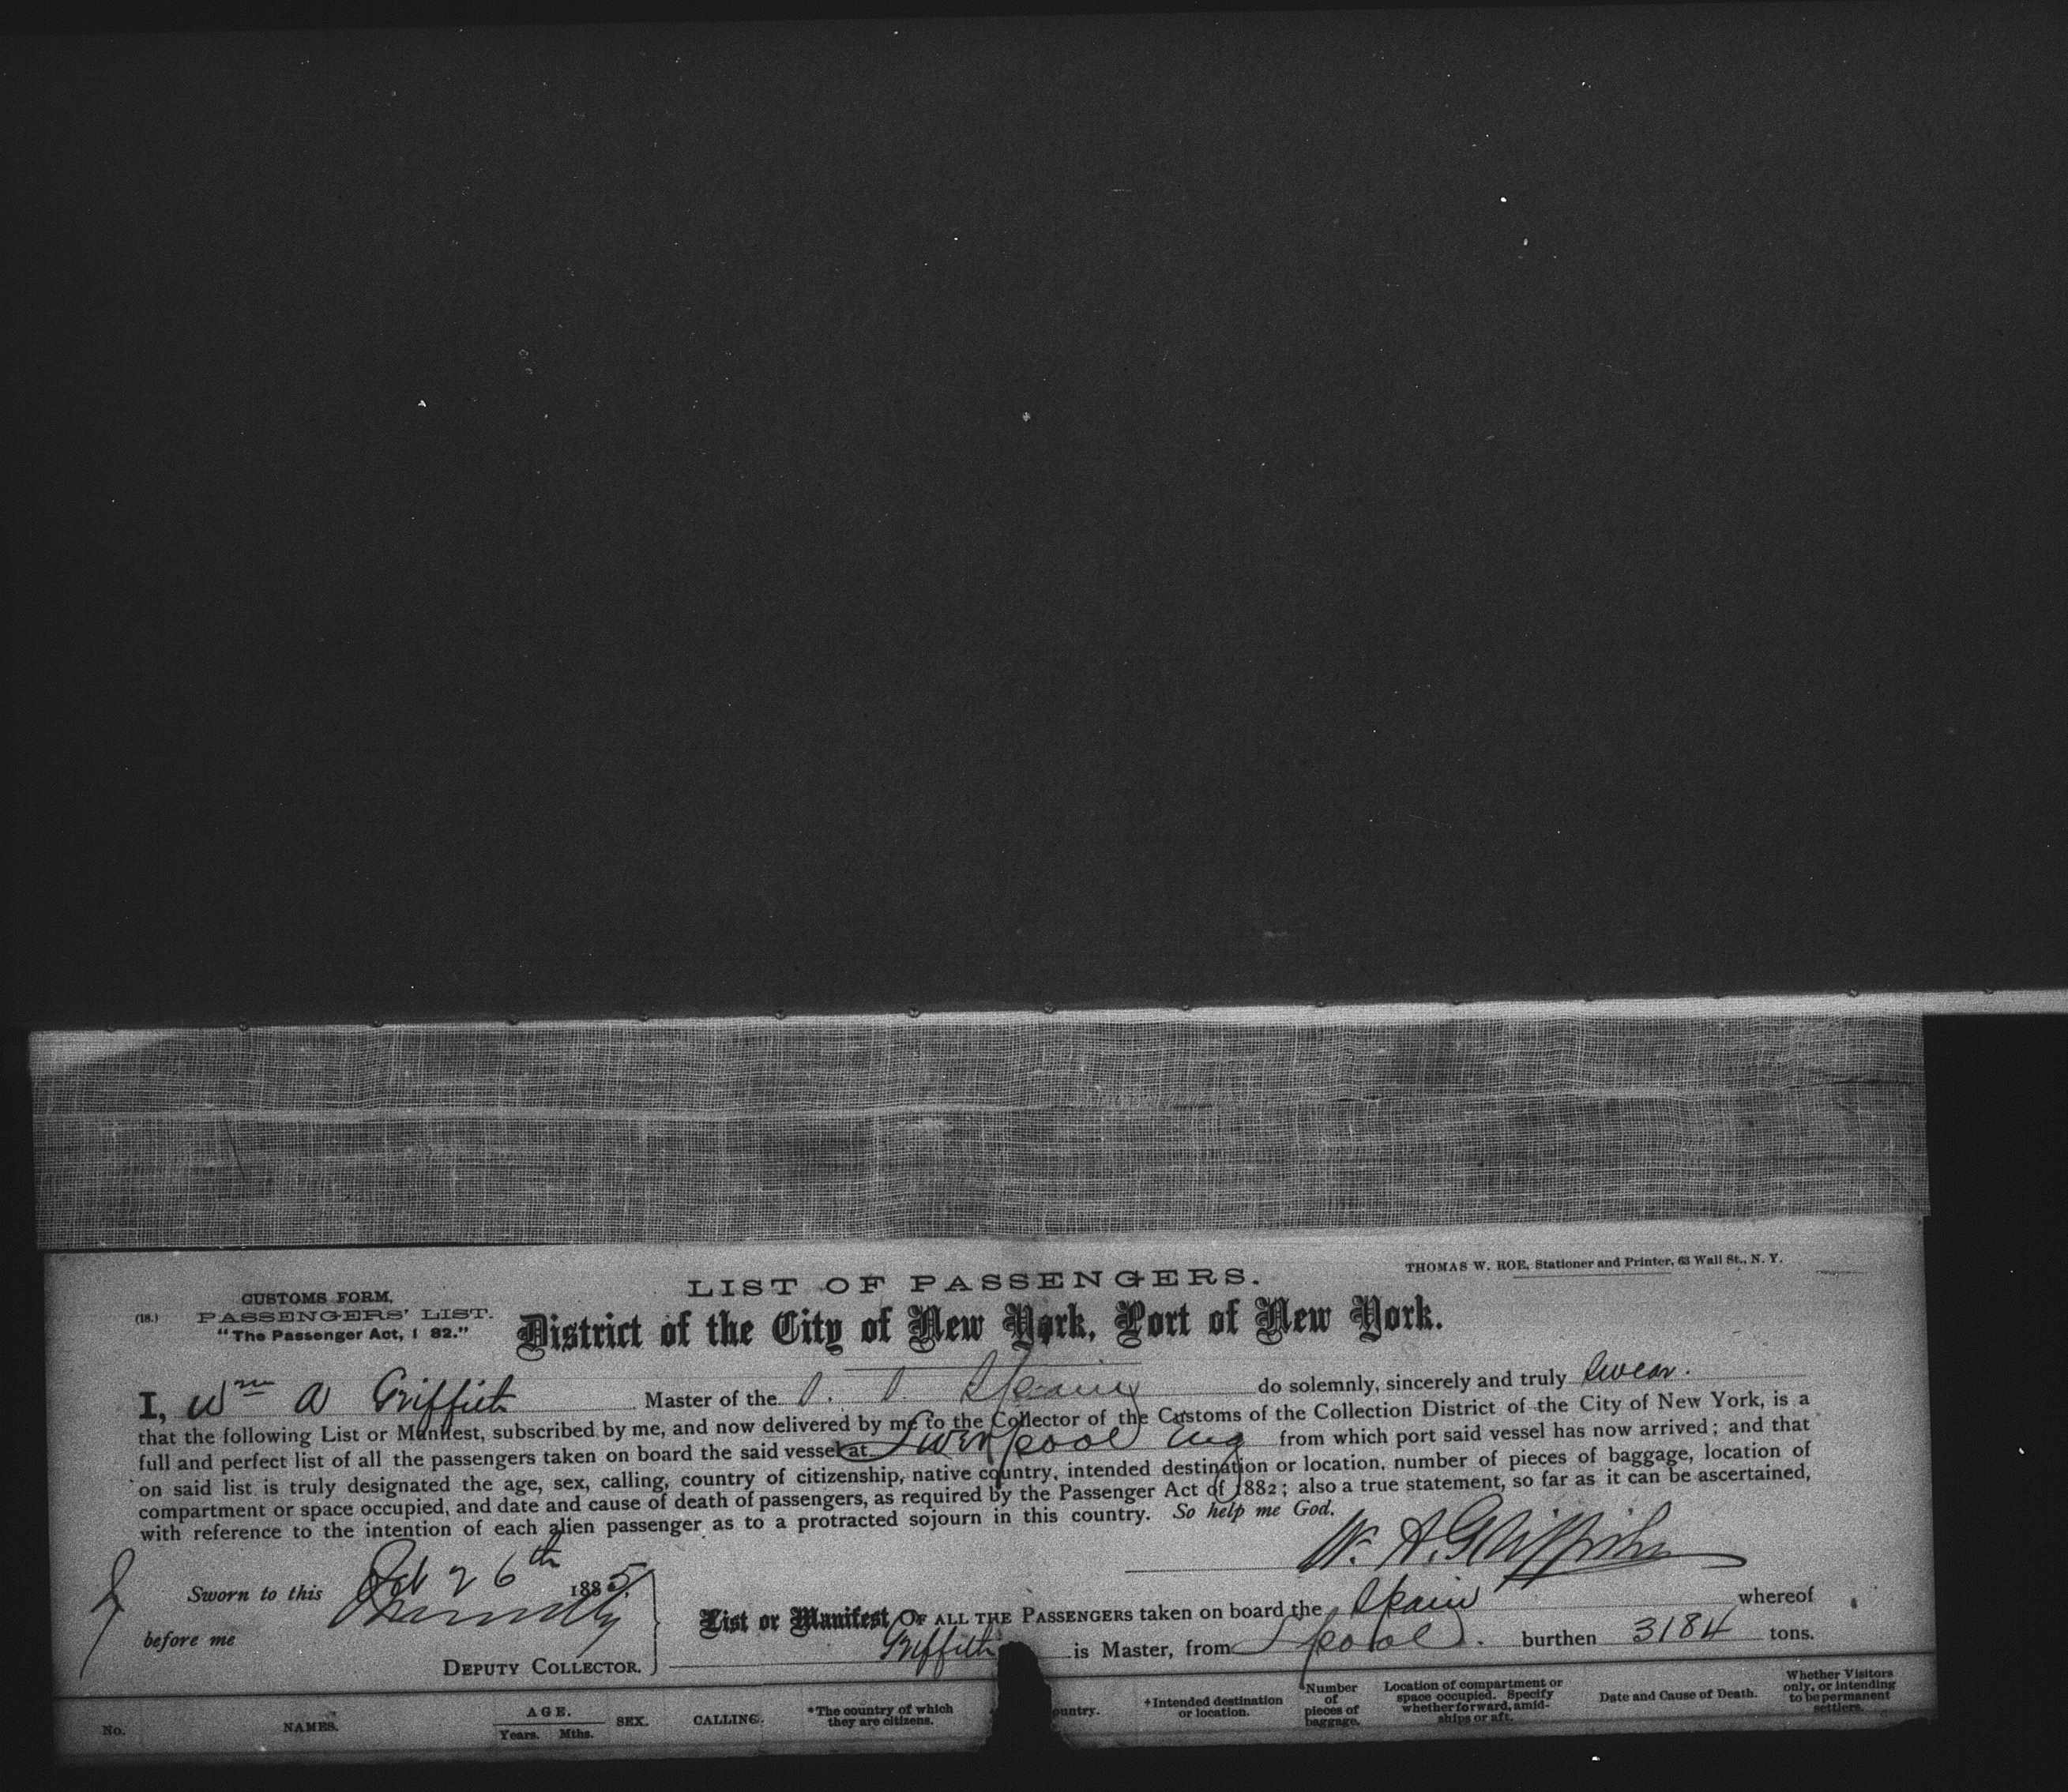 THOMAS W. ROE, Stationer and Printer, 63 Wall St., N. Y.
LIST OF PASSENGERS.
CUSTOMS FORM,
(18.) PASSENGERS' LIST.
"The Passenger Act, 1 82."
District of the City of New York, Port of New York.
I, Wm A Griffith Master of the S. S. Spain do solemnly, sincerely and truly swear.
that the following List or Manifest, subscribed by me, and now delivered by me to the Collector of the Customs of the Collection District of the City of New York, is a
full and perfect list of all the passengers taken on board the said vessel at Liverpool Eng from which port said vessel has now arrived; and that
on said list is truly designated the age, sex, calling, country of citizenship, native country, intended destination or location, number of pieces of baggage, location of
compartment or space occupied, and date and cause of death of passengers, as required by the Passenger Act of 1882; also a true statement, so far as it can be ascertained,
with reference to the intention of each alien passenger as to a protracted sojourn in this country. So help me God.
W. A. Griffiths
Sworn to this 26th 1885
before me
DEPUTY COLLECTOR.
List or Manifest OF ALL THE PASSENGERS taken on board the Spain whereof
Griffith is Master, from Lpool. burthen 3184 tons.
No. NAMES. AGE. Years. Mths. SEX. CALLING. *The country of which they are citizens. ountry. +Intended destination or location. Number of pieces of baggage. Location of compartment or space occupied. Specify whether forward, amidships or aft. Date and Cause of Death. Whether Visitors only, or intending to be permanent settlers.